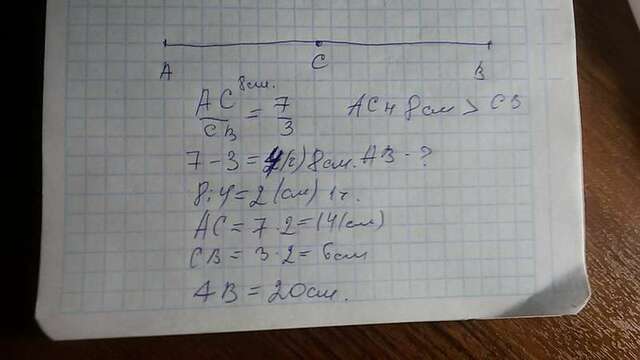 A C B
8см.
AC/CB = 7/3 AC на 8 см > CB
7 - 3 = 4 (ч) 8 см. AB - ?
8 : 4 = 2 (см) 1 ч.
AC = 7 · 2 = 14 (см)
CB = 3 · 2 = 6 см
AB = 20 см.